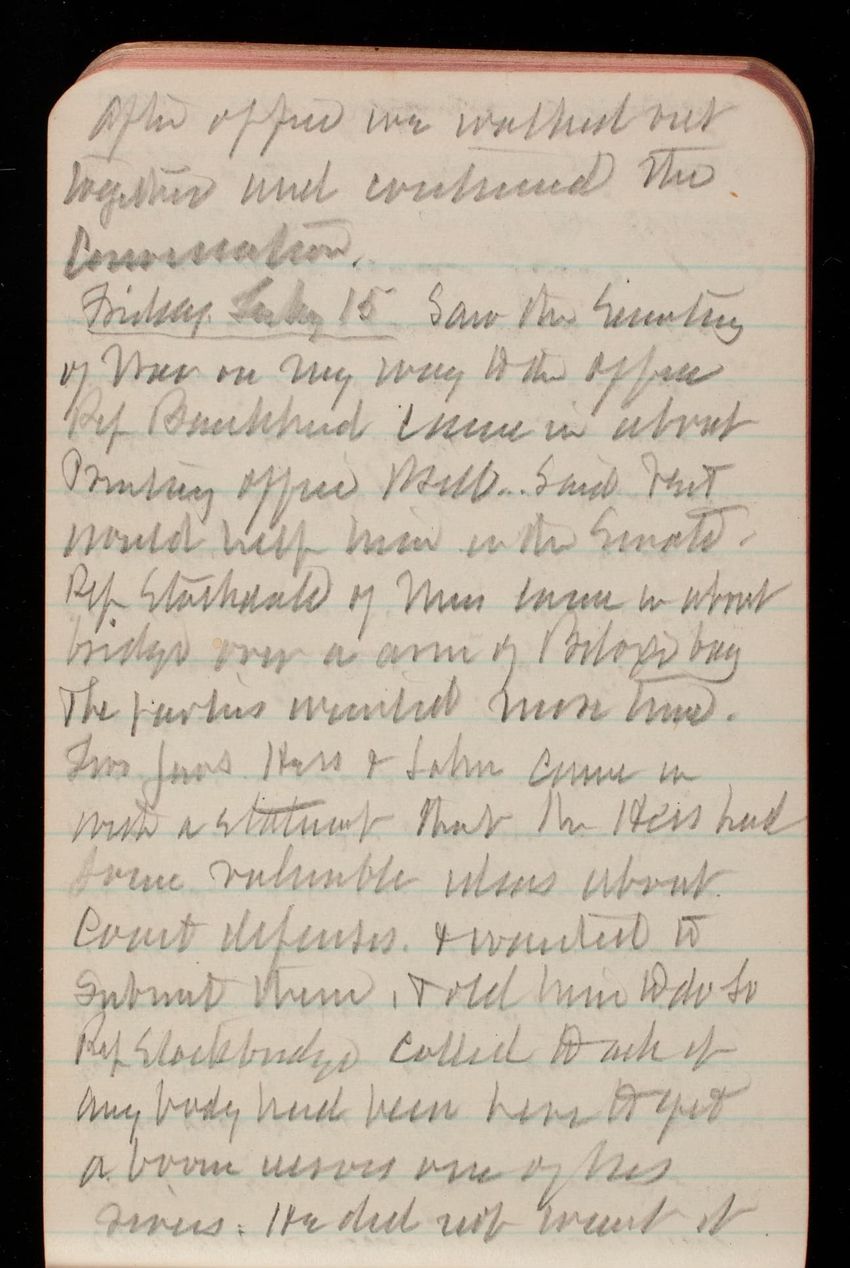 After office we walked out
together and continued the
Conversation.
Friday July 15 Saw the Secretary
of War on my way to the office
Rep Bankhead came in about
Printing office Bill.. Said that
would help him in the Senate.
Rep Stockdale of Miss came in about
bridge over a arm of Biloxi bay
The parties wanted more time.
Two Jews Hess & came in
with a statement that the Hess had
some valuable ideas about
Coast defenses. & wanted to
Submit them, told him to do so
Rep Stockbridge called to ask if
any body had been here to get
a boom across one of his
rivers. He did not want it